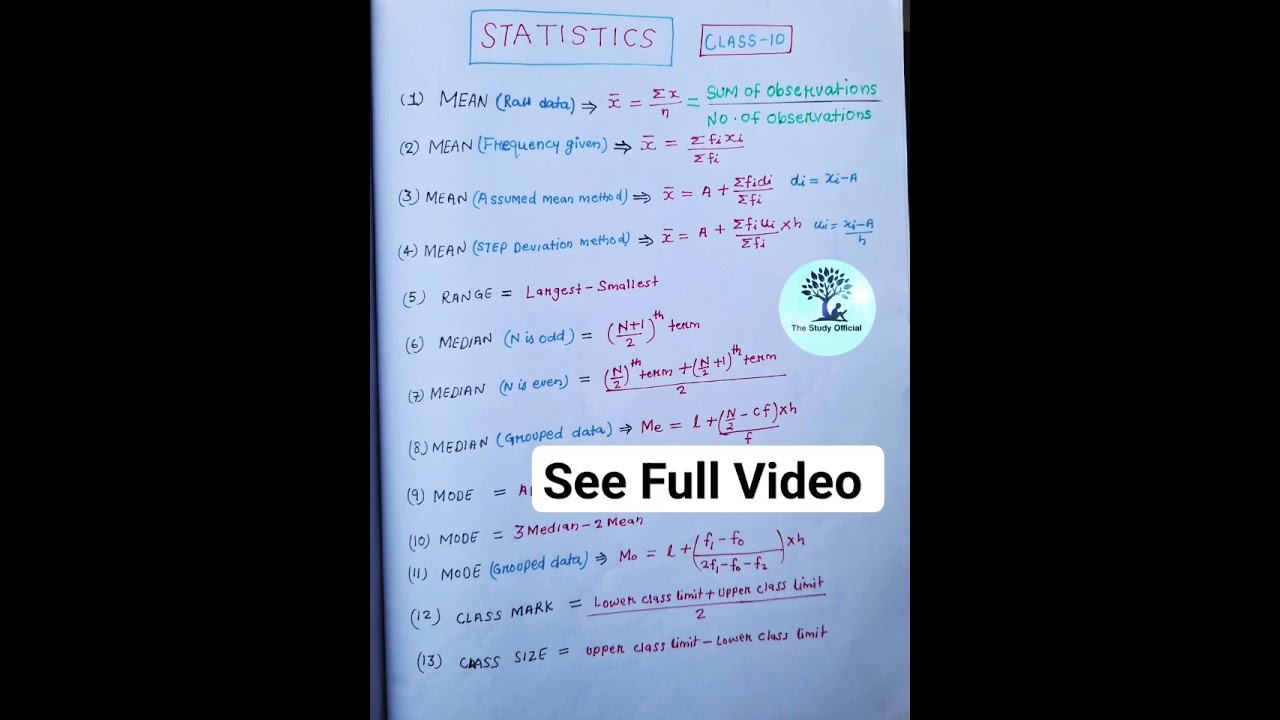 STATISTICS
CLASS-10
(1) MEAN (Raw data) ⇒ x̄ = Σx/n = SUM of observations/NO. of observations
(2) MEAN (Frequency given) ⇒ x̄ = Σfixi/Σfi
(3) MEAN (Assumed mean method) ⇒ x̄ = A + Σfidi/Σfi di = xi-A
(4) MEAN (STEP Deviation method) ⇒ x̄ = A + Σfiui/Σfi ×h ui = xi-A/h
(5) RANGE = Largest - Smallest
The Study Official
(6) MEDIAN (N is odd) = (N+1/2)th term
(7) MEDIAN (N is even) = (N/2)th term + (N/2+1)th term/2
(8) MEDIAN (Grouped data) ⇒ Me = l + (N/2 - cf)/f ×h
See Full Video
(9) MODE =
(10) MODE = 3 Median - 2 Mean
(11) MODE (Grouped data) ⇒ Mo = l + (f1-f0/2f1-f0-f2) ×h
(12) CLASS MARK = Lower class limit + Upper class limit/2
(13) CLASS SIZE = Upper class limit - Lower class limit